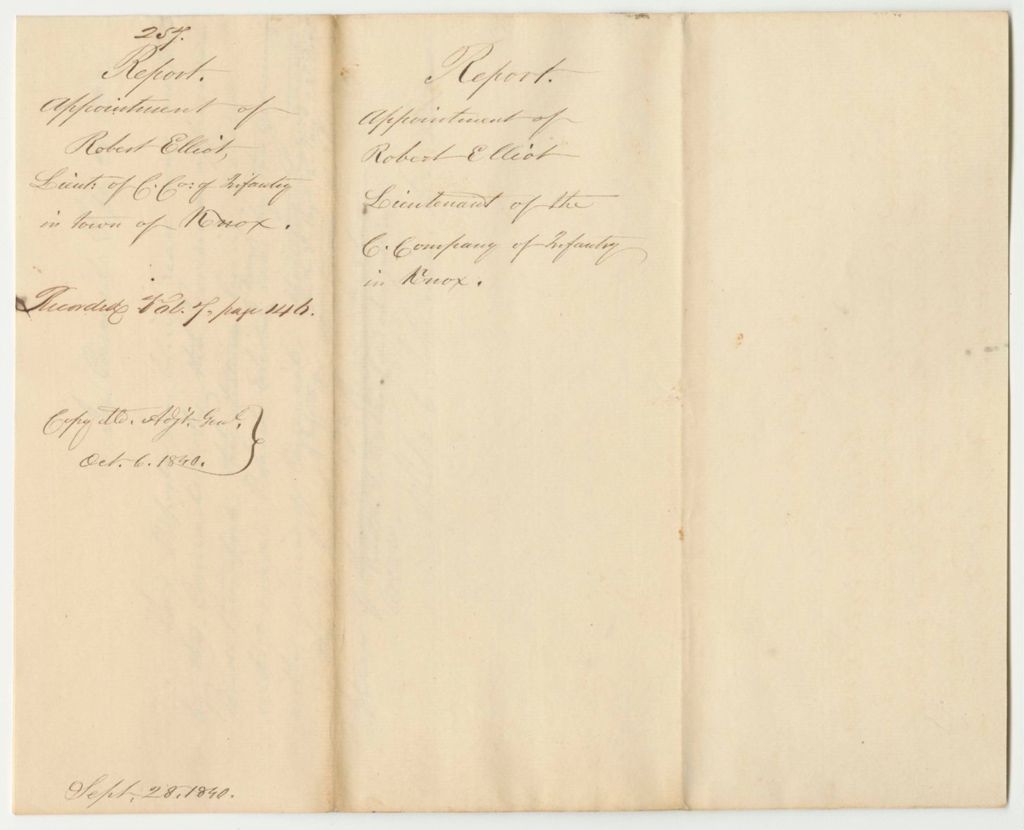 257.
Report.
Appointment of
Robert Elliot,
Lieut: of C. Co: of Infantry
in town of Knox.
Recorded Vol. 7. page 146.
Copy dld. Adjt. Genl.
Oct. 6. 1840.
Sept. 28. 1840.
Report.
Appointment of
Robert Elliot
Lieutenant of the
C. Company of Infantry
in Knox.